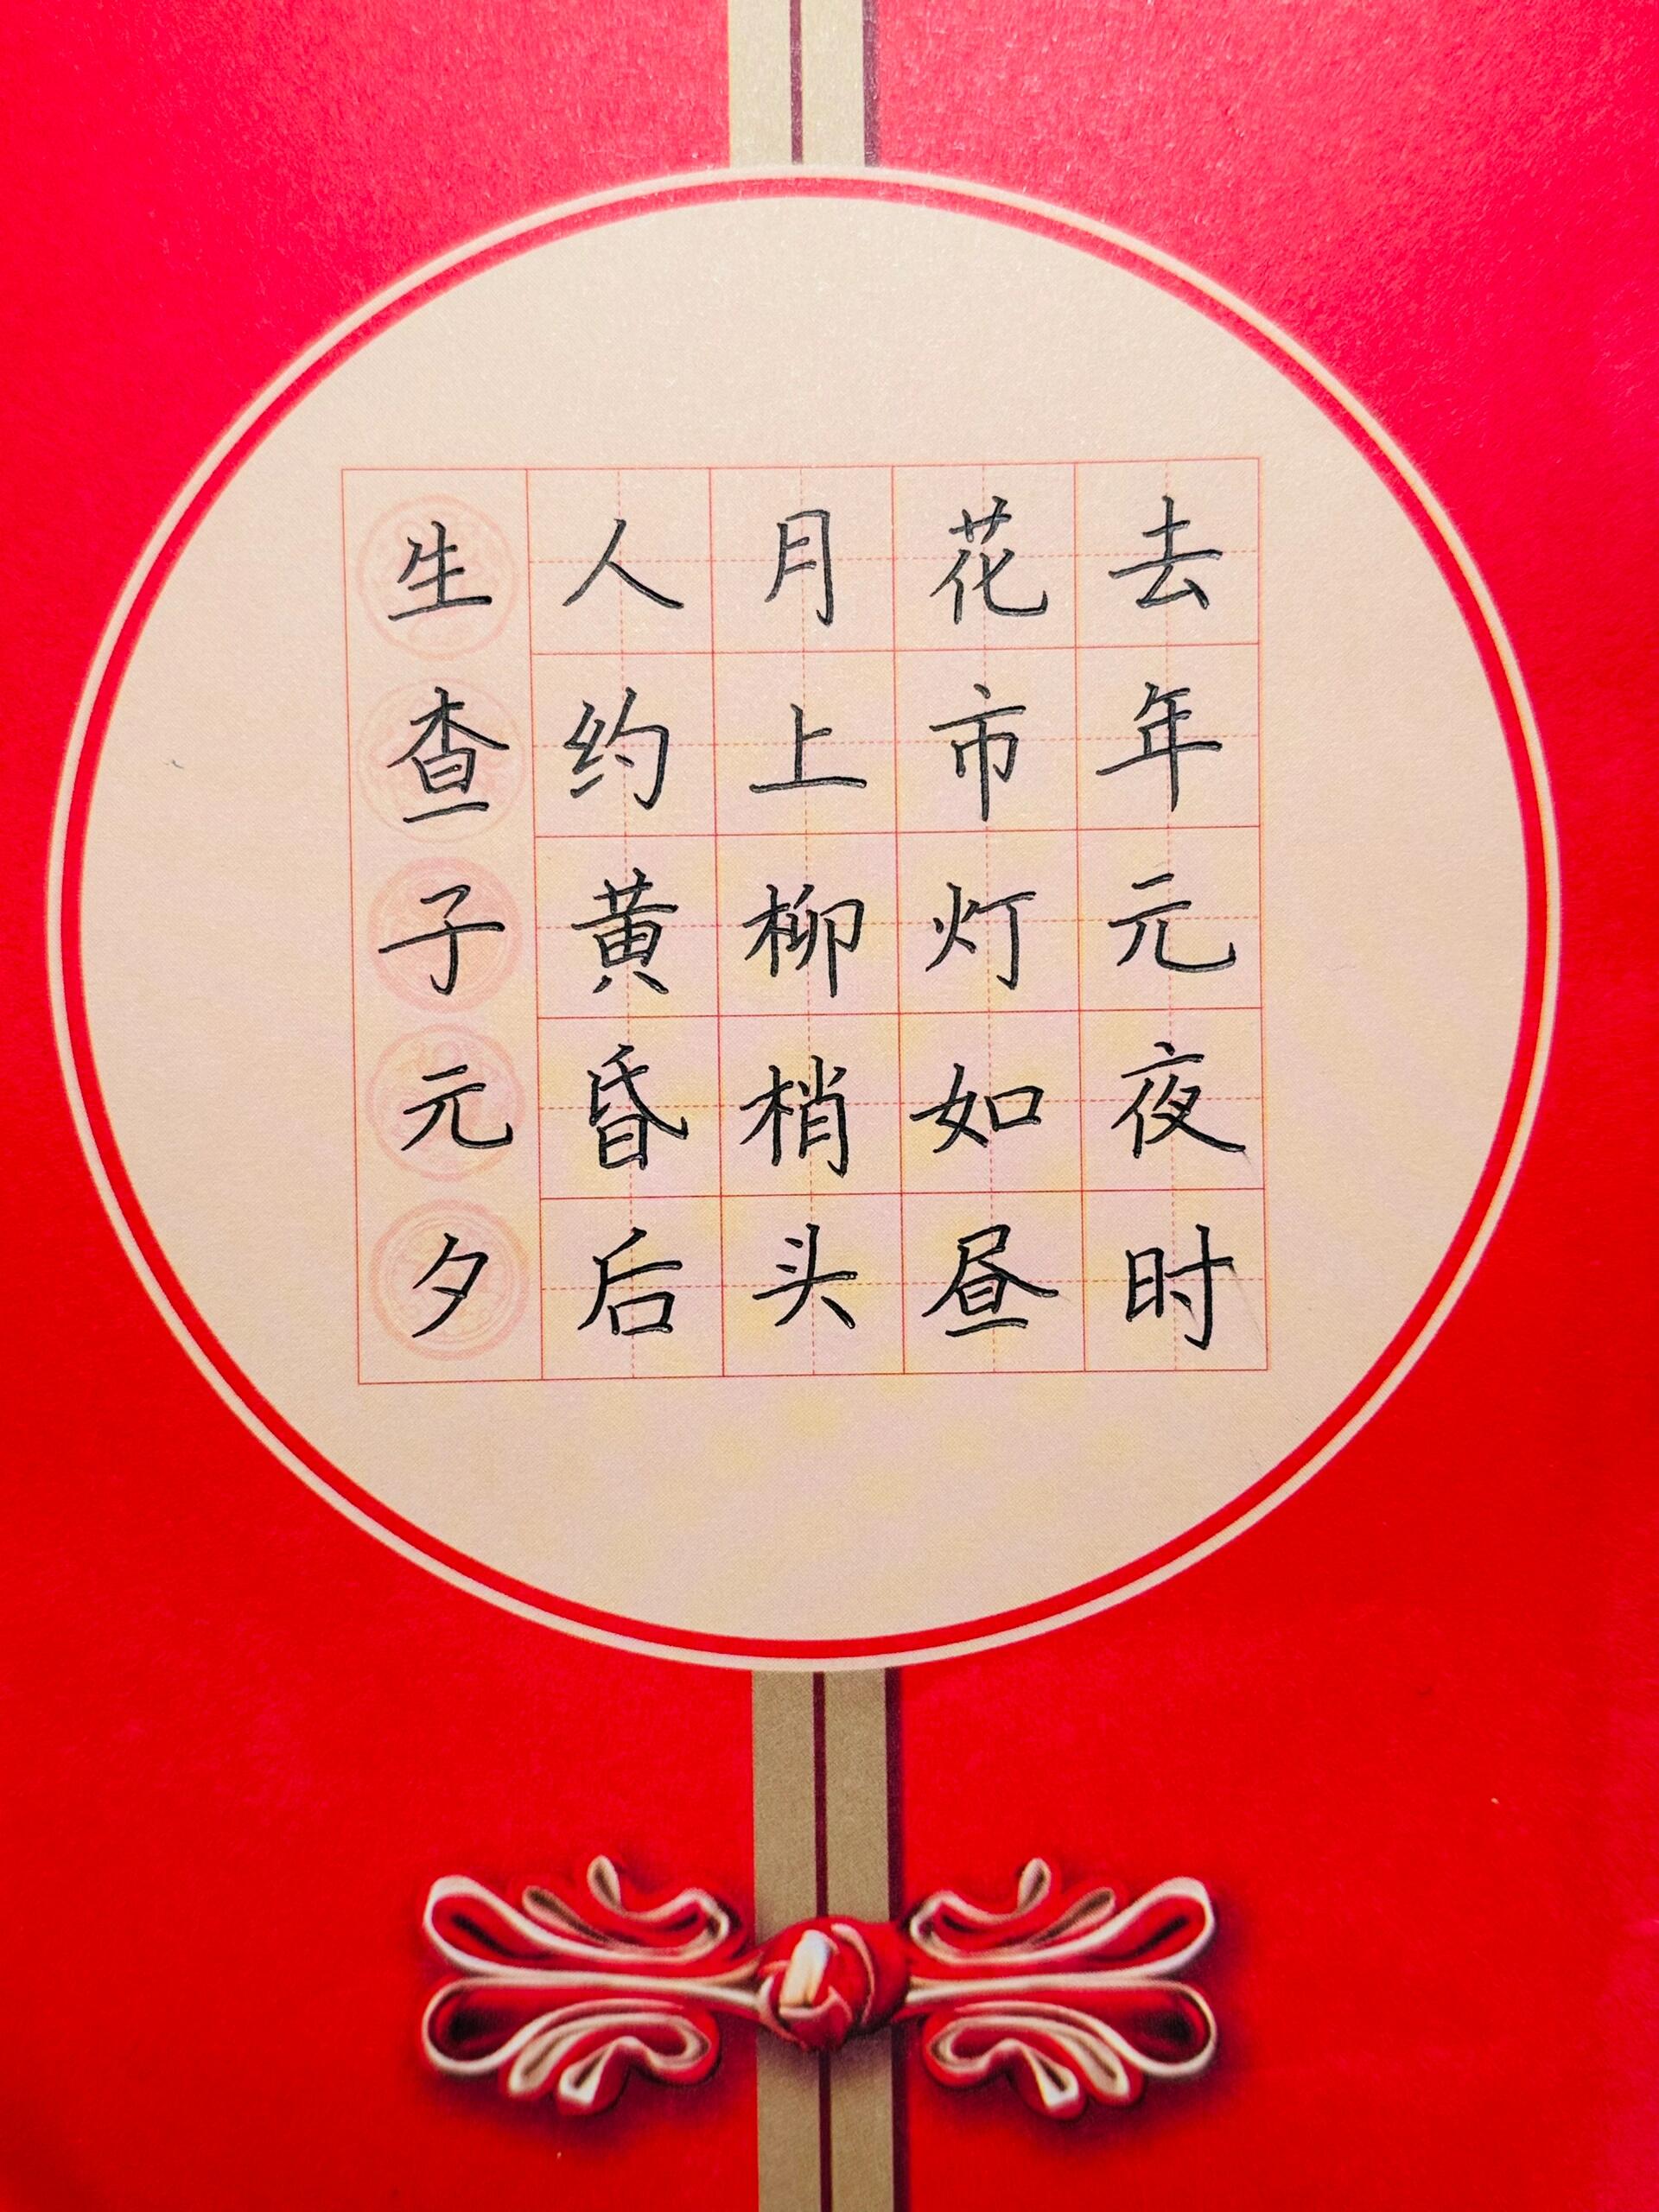 去年元夜时
花市灯如昼
月上柳梢头
人约黄昏后
生查子元夕